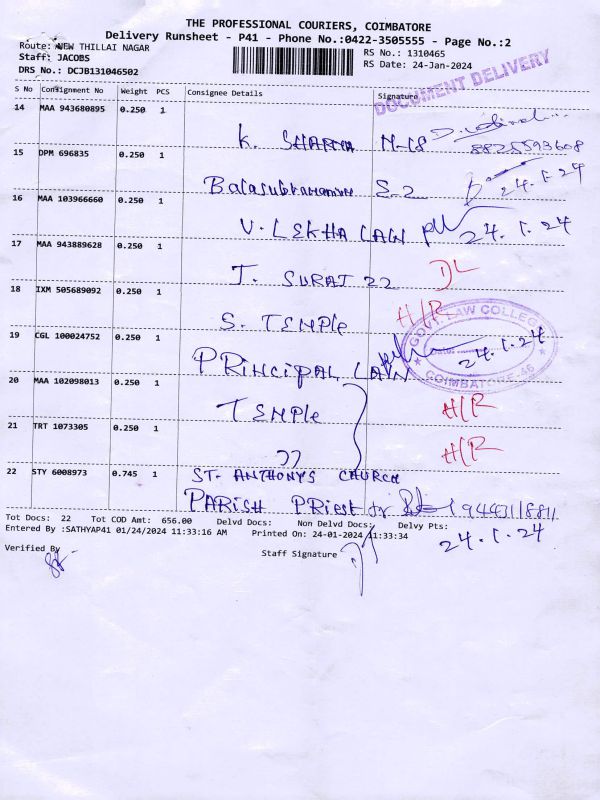 THE PROFESSIONAL COURIERS, COIMBATORE
Delivery Runsheet - P41 - Phone No.:0422-3505555 - Page No.:2
Route: NEW THILLAI NAGAR
Staff: JACOBS
DRS No.: DCJB131046502
RS No.: 1310465
RS Date: 24-Jan-2024
DOCUMENT DELIVERY
S No Consignment No Weight PCS Consignee Details Signature
14 MAA 943680895 0.250 1
K. SHARMA M-18
8825593608
15 DPM 696835 0.250 1
Balasubramanian S-2 24.1.24
16 MAA 103966660 0.250 1
V. LEKHA LAW 24.1.24
17 MAA 943889628 0.250 1
T. SURAT 22 DL
18 IXM 505689092 0.250 1
S. TEMPLE H/R
19 CGL 100024752 0.250 1
PRINCIPAL LAW 24.1.24
GOVT. LAW COLLEGE
COIMBATORE-46
20 MAA 102098013 0.250 1
TEMPLE H/R
21 TRT 1073305 0.250 1
H/R
22 STY 6008973 0.745 1
ST. ANTHONYS CHURCH
PARISH PRiest
Tot Docs: 22 Tot COD Amt: 656.00 Delvd Docs: Non Delvd Docs: Delvy Pts:
24.1.24
Entered By :SATHYAP41 01/24/2024 11:33:16 AM Printed On: 24-01-2024 11:33:34
Verified By
Staff Signature